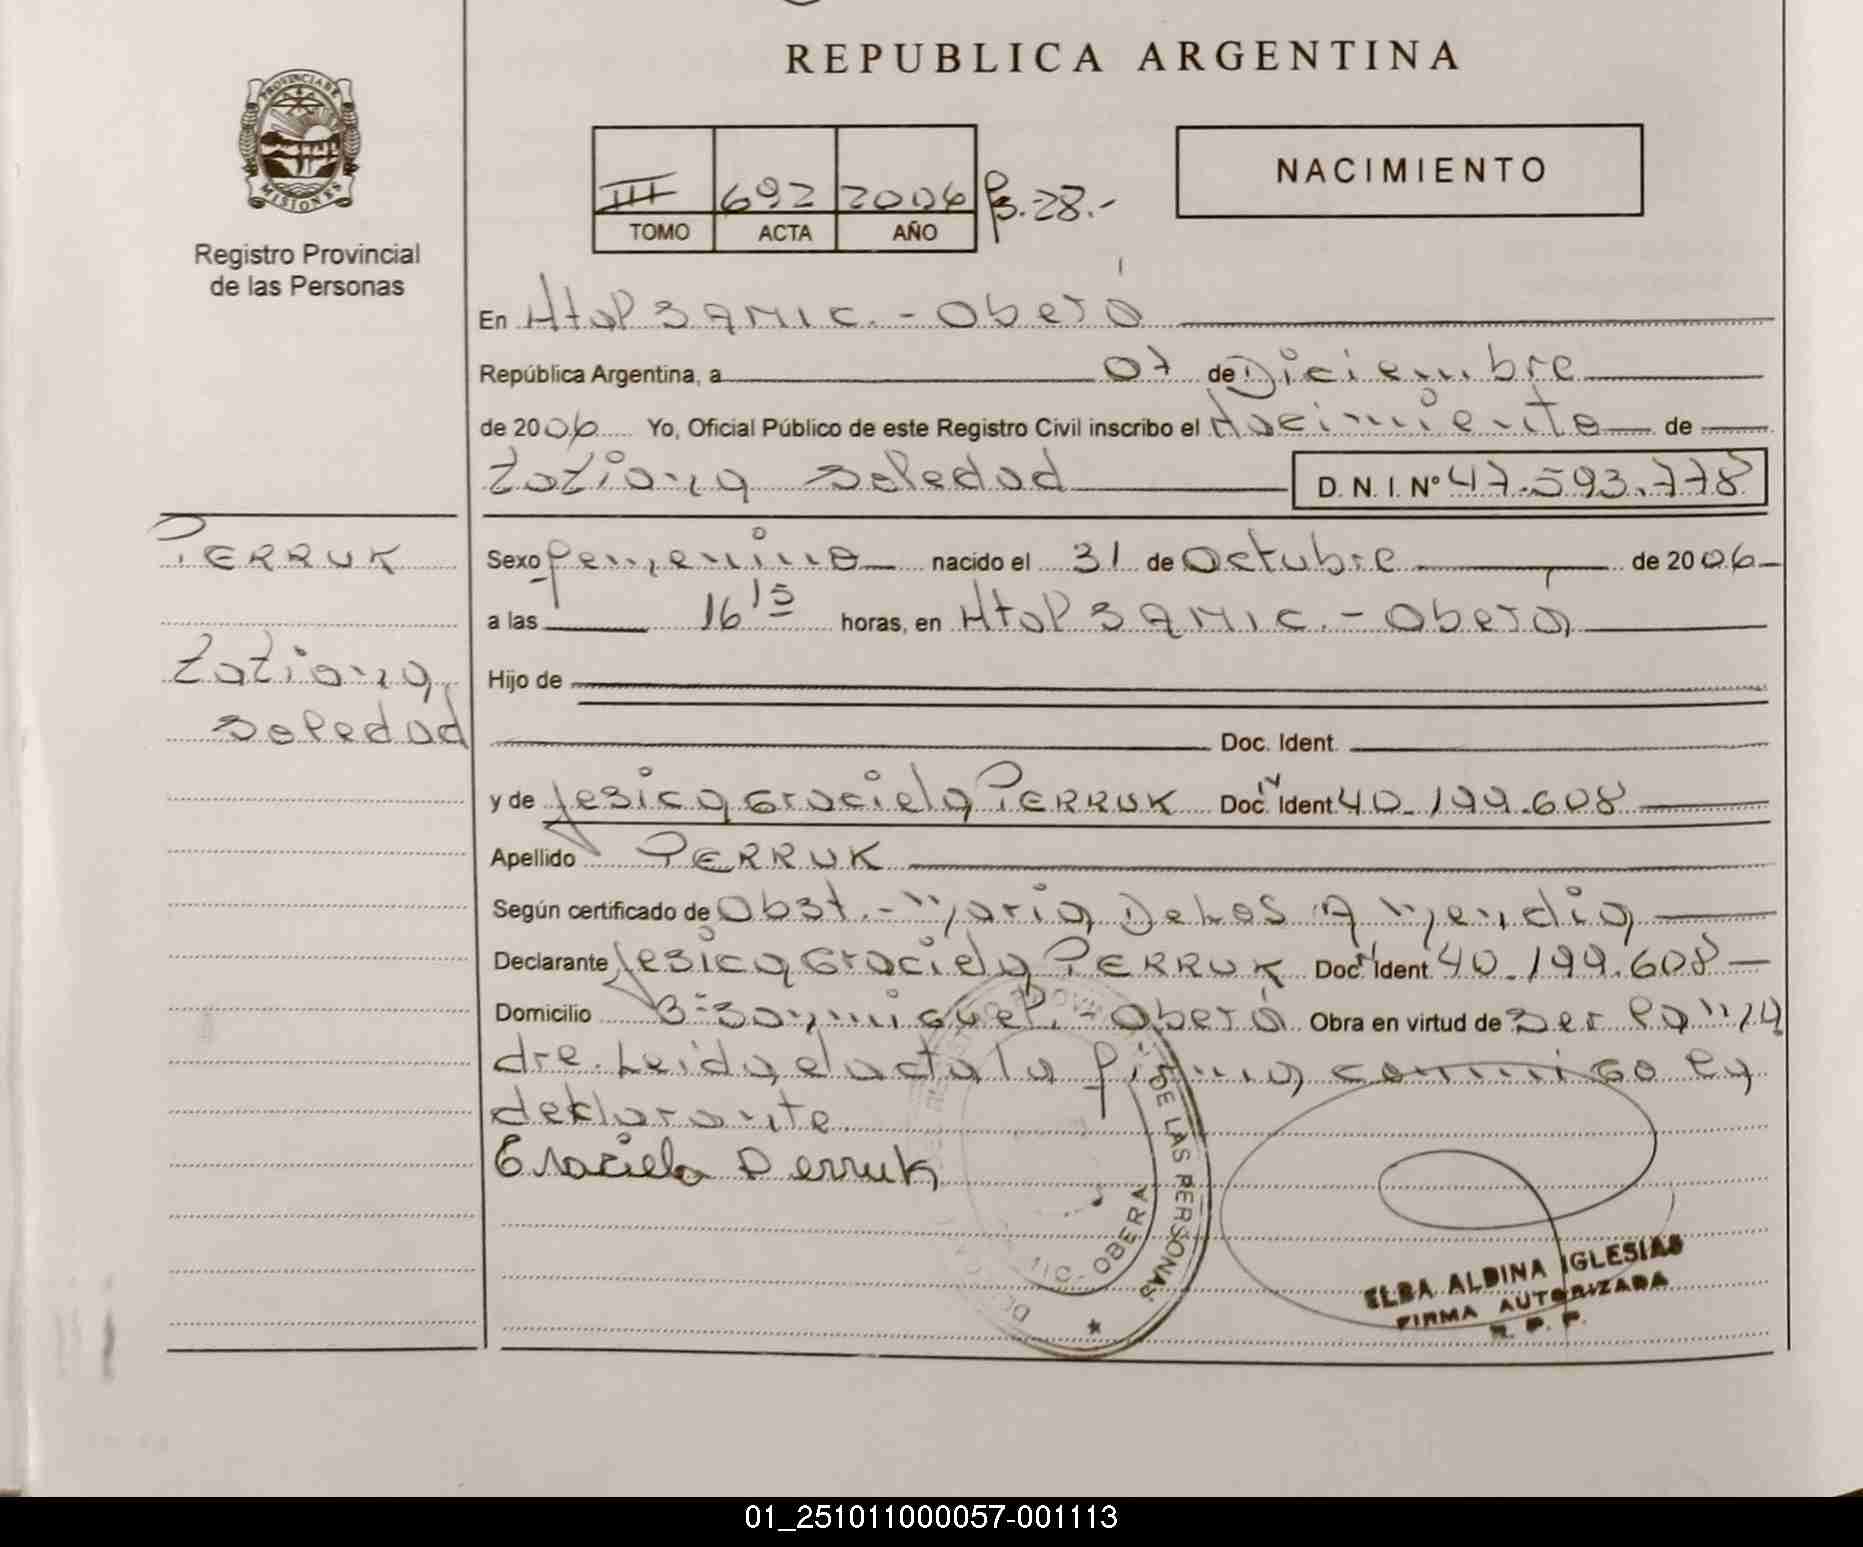 REPUBLICA ARGENTINA
PROVINCIA DE MISIONES
Registro Provincial
de las Personas
NACIMIENTO
III 692 2006 Fs. 28.-
TOMO ACTA AÑO
En Htal SAMIC. - Oberá
República Argentina, a 07 de Diciembre
de 2006 Yo, Oficial Público de este Registro Civil inscribo el Nacimiento de
Tatiana Soledad D. N. I. Nº 47.593.778
PERRUK
Tatiana
Soledad
Sexo femenino nacido el 31 de Octubre de 2006
a las 16 15 horas, en Htal SAMIC. - Oberá
Hijo de
Doc. Ident.
y de Jesica Graciela PERRUK Doc. Ident 40.199.608
Apellido PERRUK
Según certificado de Obst. - Maria De Los A Mendia
Declarante Jesica Graciela PERRUK Doc. Ident. 40.199.608
Domicilio Bº San Miguel. - Oberá Obra en virtud de ser la ma
dre. Leida el acta la firma conmigo la
declarante.
Graciela Perruk
DE LAS PERSONAS
OBERA
ELBA ALDINA IGLESIAS
FIRMA AUTORIZADA
R. P. P.
01_251011000057-001113